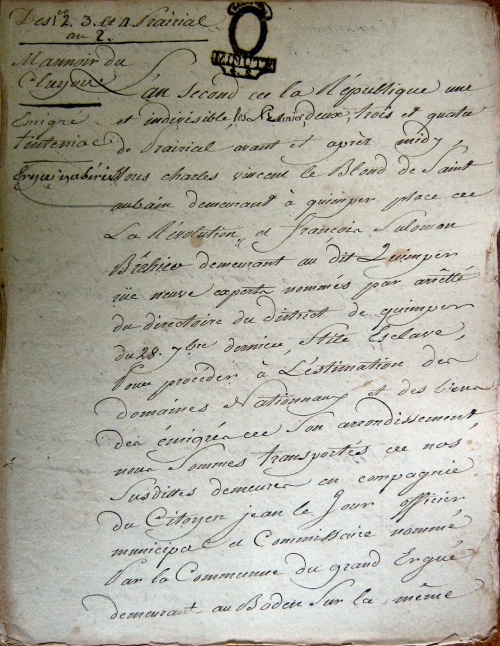 Des 1er 2. 3. et 4 Prairial
an 2.
MINUTE
Mannoir du
Cluyou
Emigré
tinteniac
Ergué
L'an second de la République une
et indivisible, les premier, deux, trois et quatre
de Prairial avant et après midy
Nous charles vincent le Blond de Saint
aubain demeurant à quimper place de
La Révolution, et françois Salomon
Bréhier demeurant au dit Quimper
rüe neuve experts nommés par arrêté
du directoire du district de quimper
du 28. 7bre dernier, stile Esclave,
Pour procéder à L'estimation des
domaines Nationnaux et des biens
des émigrés de Son arrondissement
nous Sommes transportés de nos
Susdittes demeures en compagnie
du Citoyen jean le Jour officier
municipal et Commissaire nommé
Par la Commune du grand Ergué
demeurant au Boden Sur la même